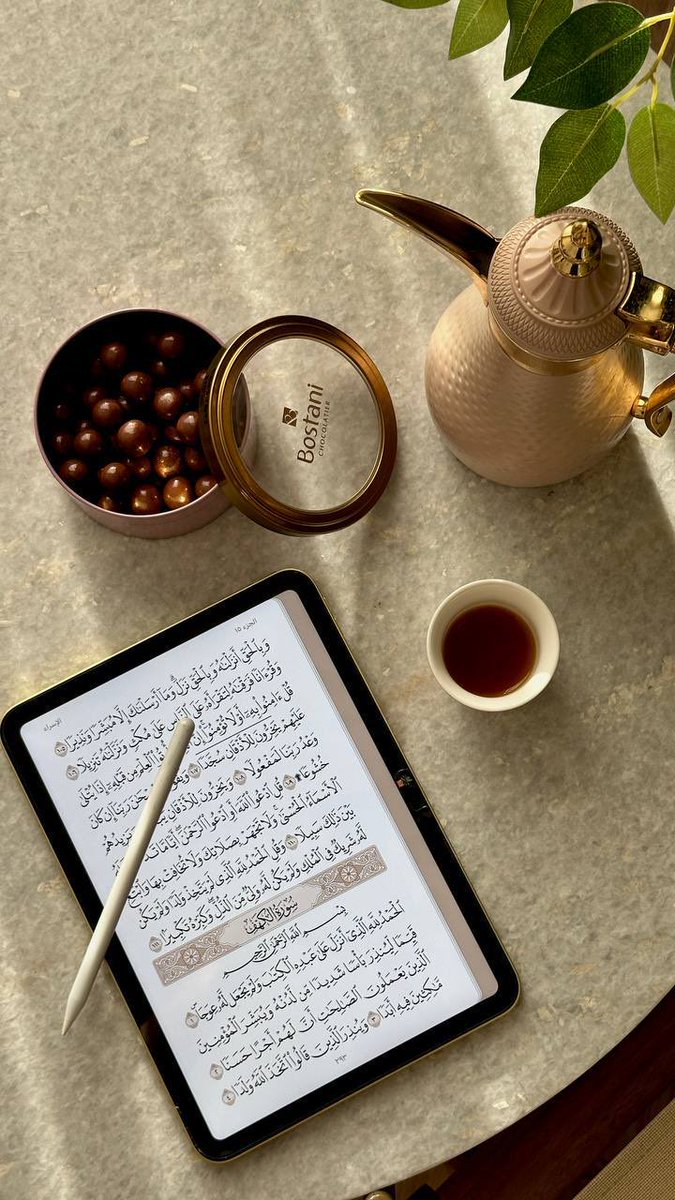 Bostani
CHOCOLATIER
الجزء ١٥
الإسراء
وَبِٱلْحَقِّ أَنزَلْنَٰهُ وَبِٱلْحَقِّ نَزَلَ وَمَآ أَرْسَلْنَٰكَ إِلَّا مُبَشِّرًا وَنَذِيرًا ١٠٥
وَقُرْءَانًا فَرَقْنَٰهُ لِتَقْرَأَهُۥ عَلَى ٱلنَّاسِ عَلَىٰ مُكْثٍ وَنَزَّلْنَٰهُ تَنزِيلًا ١٠٦
قُلْ ءَامِنُوا۟ بِهِۦٓ أَوْ لَا تُؤْمِنُوٓا۟ إِنَّ أُوتُوا۟ ٱلْعِلْمَ مِن قَبْلِهِۦٓ إِذَا يُتْلَىٰ
عَلَيْهِمْ يَخِرُّونَ لِلْأَذْقَانِ سُجَّدًا ١٠٧ رَبِّنَآ إِن كَانَ
وَعْدُ رَبِّنَا لَمَفْعُولًا ١٠٨ وَيَخِرُّونَ لِلْأَذْقَانِ وَيَزِيدُهُمْ
خُشُوعًا ١٠٩ قُلِ ٱدْعُوا۟ ٱللَّهَ أَوِ ٱدْعُوا۟ ٱلرَّحْمَٰنَ أَيًّا مَّا تَدْعُوا۟
ٱلْأَسْمَآءُ ٱلْحُسْنَىٰ وَلَا تَجْهَرْ بِصَلَاتِكَ وَلَا تُخَافِتْ بِهَا وَٱبْتَغِ
بَيْنَ ذَٰلِكَ سَبِيلًا ١١٠ وَقُلِ ٱلْحَمْدُ لِلَّهِ ٱلَّذِى لَمْ يَتَّخِذْ وَلَدًا وَلَمْ يَكُن
لَّهُۥ شَرِيكٌ فِى ٱلْمُلْكِ وَلَمْ يَكُن لَّهُۥ وَلِىٌّ مِّنَ ٱلذُّلِّ وَكَبِّرْهُ تَكْبِيرًۢا ١١١
سُورَةُ الكَهْفِ
بِسْمِ ٱللَّهِ ٱلرَّحْمَٰنِ ٱلرَّحِيمِ
ٱلْحَمْدُ لِلَّهِ ٱلَّذِىٓ أَنزَلَ عَلَىٰ عَبْدِهِ ٱلْكِتَٰبَ وَلَمْ يَجْعَل لَّهُۥ عِوَجَا ١
قَيِّمًا لِّيُنذِرَ بَأْسًا شَدِيدًا مِّن لَّدُنْهُ وَيُبَشِّرَ ٱلْمُؤْمِنِينَ
ٱلَّذِينَ يَعْمَلُونَ ٱلصَّٰلِحَٰتِ أَنَّ لَهُمْ أَجْرًا حَسَنًا ٢
مَّٰكِثِينَ فِيهِ أَبَدًا ٣ وَيُنذِرَ ٱلَّذِينَ قَالُوا۟ ٱتَّخَذَ ٱللَّهُ وَلَدًا ٤
٢٩٣